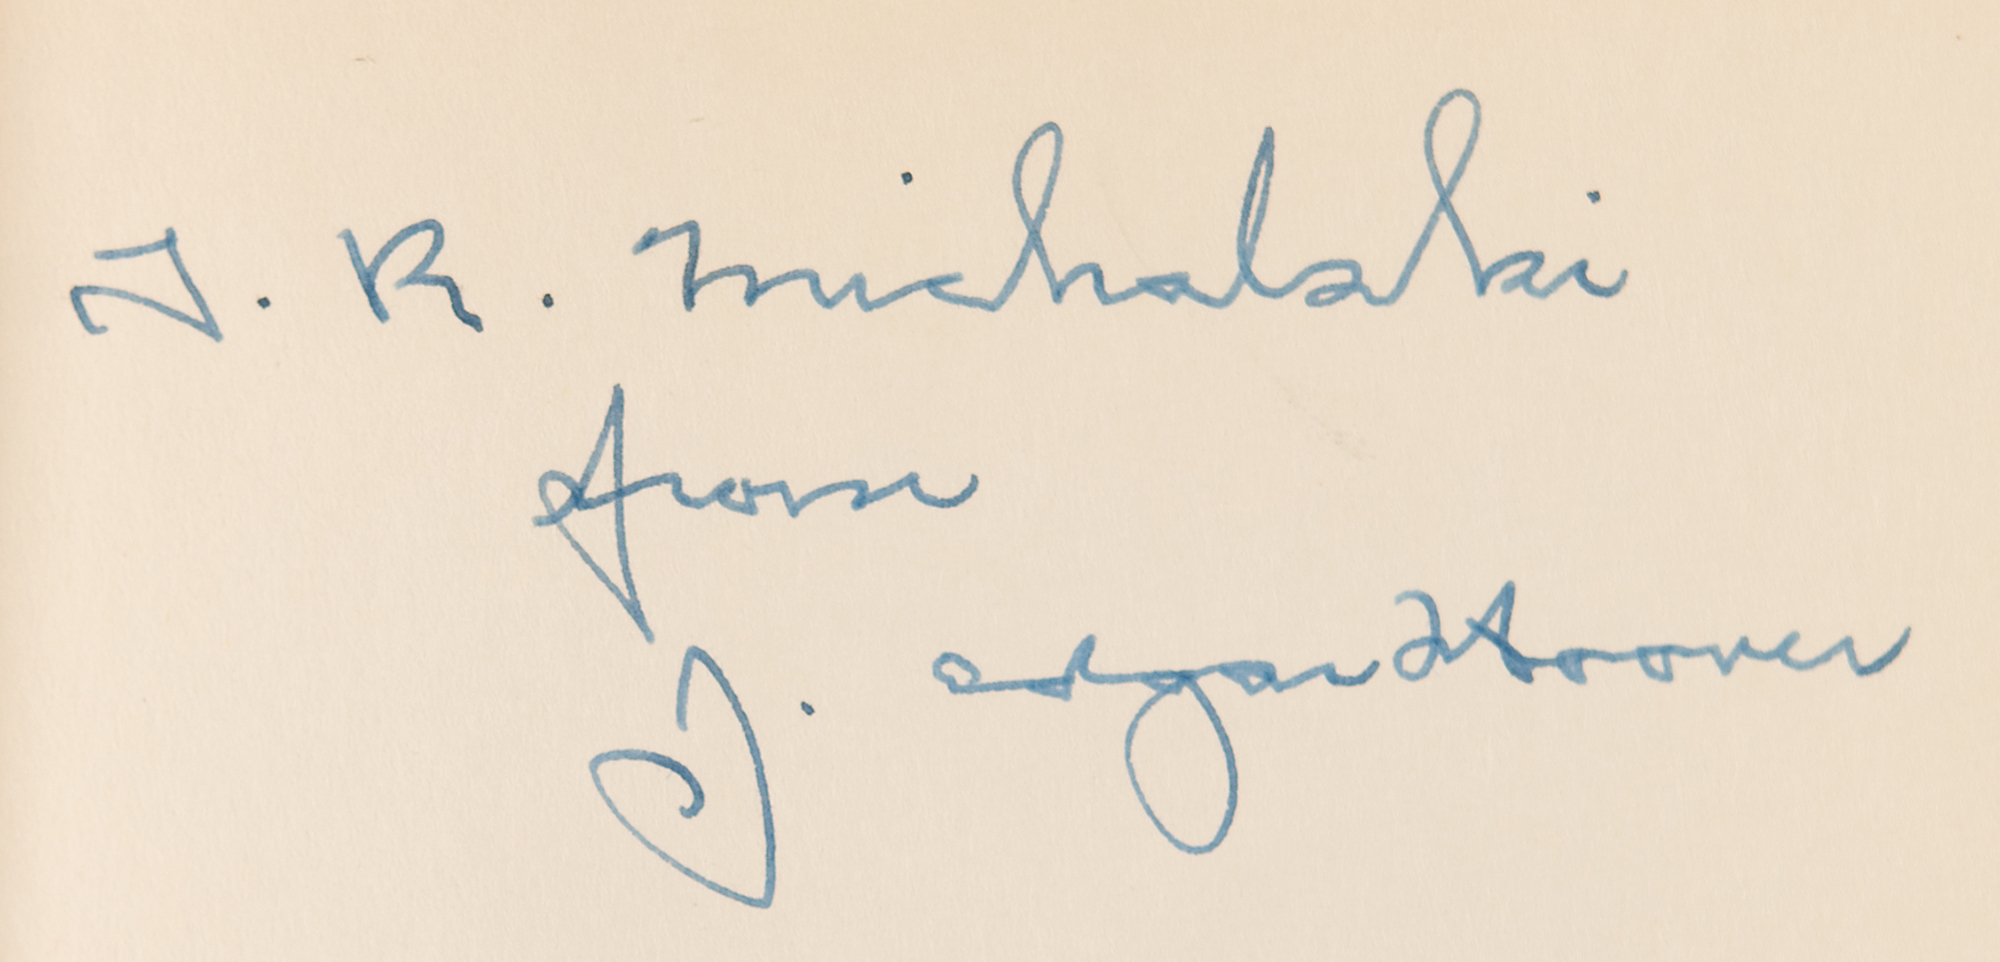 T. R. Michalski
from
J. Edgar Hoover